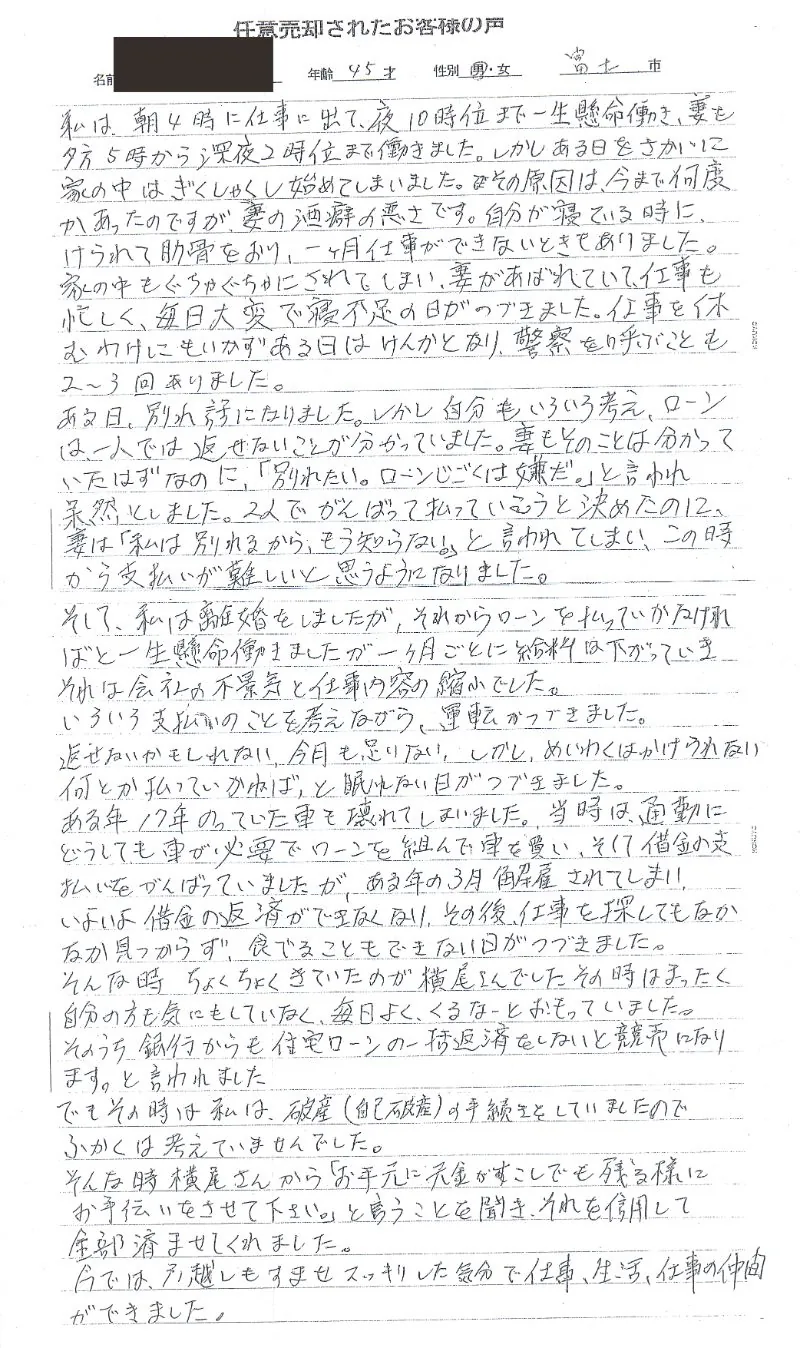 任意売却されたお客様の声
名前 年齢 45才 性別 男・女 富士市
私は、朝4時に仕事に出て、夜10時位まで一生懸命働き、妻も
夕方5時から深夜2時位まで働きました。しかしある日をさかいに
家の中はぎくしゃくし始めてしまいました。その原因は、今まで何度
かあったのですが、妻の酒癖の悪さです。自分が寝ている時に、
けられて肋骨をおり、一ヶ月仕事ができないときもありました。
家の中もぐちゃぐちゃにされてしまい、妻があばれていて、仕事も
忙しく、毎日大変で寝不足の日がつづきました。仕事を休
むわけにもいかずある日はけんかとなり、警察を呼ぶことも
2～3回ありました。
ある日、別れ話になりました。しかし自分もいろいろ考え、ローン
は、一人では返せないことが分かっていました。妻もそのことは分かって
いたはずなのに、「別れたい。ローンじごくは嫌だ。」と言われ
呆然としました。2人でがんばって払っていこうと決めたのに、
妻は「私は別れるから、もう知らない。」と言われてしまい、この時
から支払いが難しいと思うようになりました。
そして、私は離婚をしましたが、それからローンを払っていかなけれ
ばと一生懸命働きましたが一ヶ月ごとに給料は下がっていき
それは会社の不景気と仕事内容の縮小でした。
いろいろ支払いのことを考えながら、運転がつづきました。
返せないかもしれない、今月も足りない、しかし、めいわくはかけられない
何とか払っていかねば、と眠れない日がつづきました。
ある年17年のっていた車も壊れてしまいました。当時は、通勤に
どうしても車が必要でローンを組んで車を買い、そして借金の支
払いをがんばっていましたが、ある年の3月解雇されてしまい、
いよいよ借金の返済ができなくなり、その後、仕事を探してもなか
なか見つからず、食べることもできない日がつづきました。
そんな時ちょくちょくきていたのが横尾さんでしたその時はまったく
自分の方も気にもしていなく、毎日よく、くるなーとおもっていました。
そのうち銀行からも住宅ローンの一括返済をしないと競売になり
ます。と言われました
でもその時は私は、破産(自己破産)の手続きをしていましたので
ふかくは考えていませんでした。
そんな時横尾さんから「お手元にお金がすこしでも残る様に
お手伝いをさせて下さい。」と言うことを聞き、それを信用して
全部済ませてくれました。
今では、引越しもすませスッキリした気分で仕事、生活、仕事の仲間
ができました。